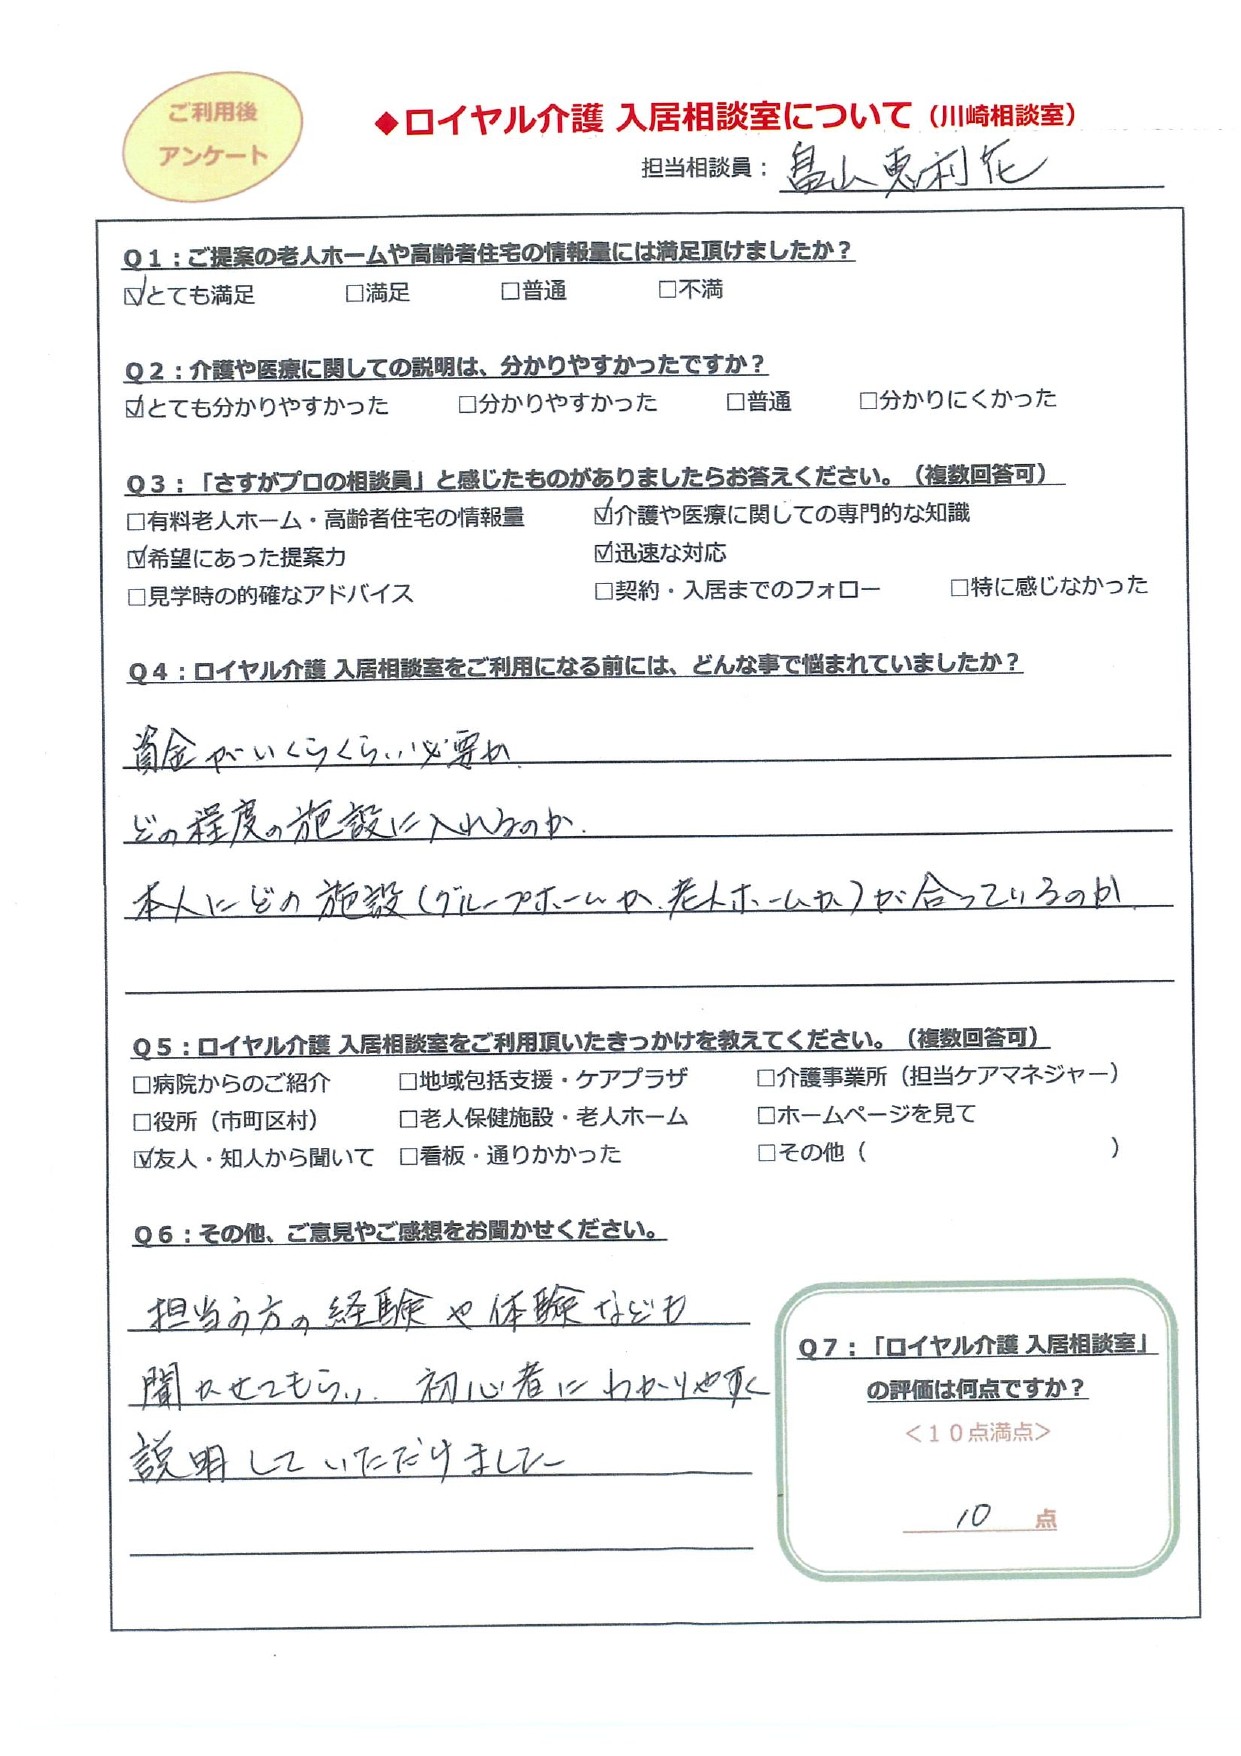 ご利用後
アンケート
◆ロイヤル介護 入居相談室について（川崎相談室）
担当相談員： 畠山恵利花
Q1：ご提案の老人ホームや高齢者住宅の情報量には満足頂けましたか？
☑とても満足 □満足 □普通 □不満
Q2：介護や医療に関しての説明は、分かりやすかったですか？
☑とても分かりやすかった □分かりやすかった □普通 □分かりにくかった
Q3：「さすがプロの相談員」と感じたものがありましたらお答えください。（複数回答可）
□有料老人ホーム・高齢者住宅の情報量 ☑介護や医療に関しての専門的な知識
☑希望にあった提案力 ☑迅速な対応
□見学時の的確なアドバイス □契約・入居までのフォロー □特に感じなかった
Q4：ロイヤル介護 入居相談室をご利用になる前には、どんな事で悩まれていましたか？
資金がいくらくらい必要か.
どの程度の施設に入れるのか.
本人にどの施設（グループホームか、老人ホームか）が合っているのか.
Q5：ロイヤル介護 入居相談室をご利用頂いたきっかけを教えてください。（複数回答可）
□病院からのご紹介 □地域包括支援・ケアプラザ □介護事業所（担当ケアマネジャー）
□役所（市町区村） □老人保健施設・老人ホーム □ホームページを見て
☑友人・知人から聞いて □看板・通りかかった □その他（ ）
Q6：その他、ご意見やご感想をお聞かせください。
担当の方の経験や体験なども
聞かせてもらい、初心者にわかりやすく
説明していただけました
Q7：「ロイヤル介護 入居相談室」
の評価は何点ですか？
＜10点満点＞
10 点